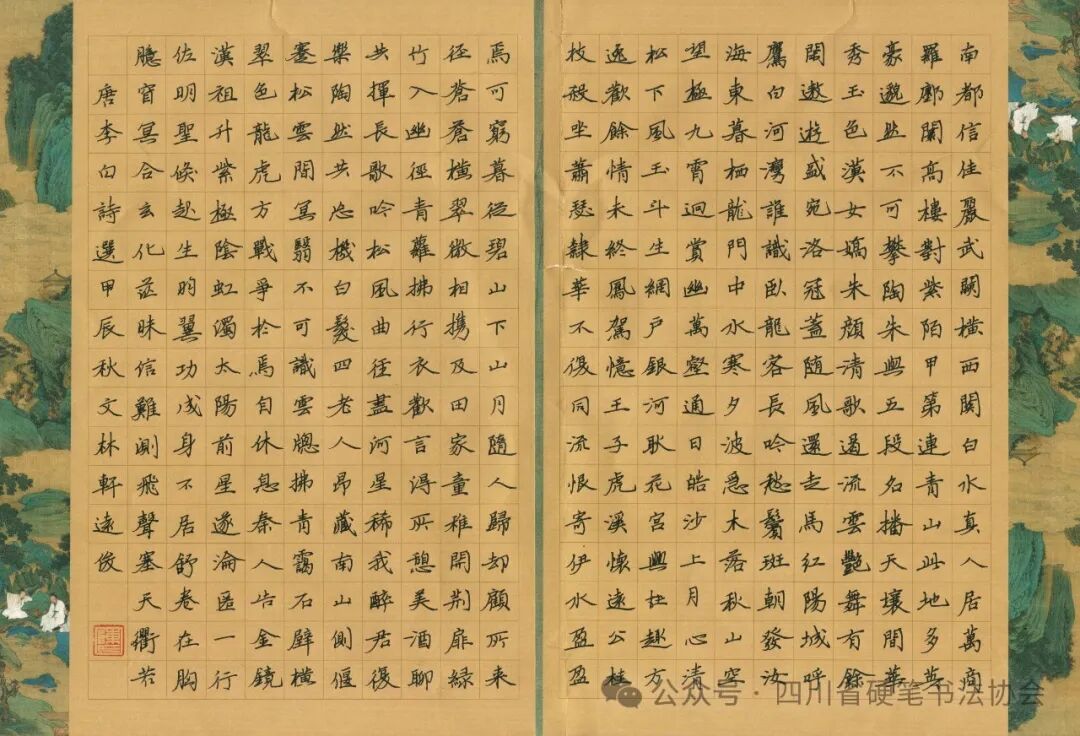 南都信佳麗武闕橫西關白水真人居萬商
羅鄽闤高樓對紫陌甲第連青山此地多英
豪邈然不可攀陶朱與五段名播天壤間華
秀玉色漢女嬌朱顏清歌遏流雲艷舞有餘
閑遨遊盛宛洛冠蓋随風還走馬紅陽城呼
鷹白河灣誰識臥龍客長吟愁鬢斑朝發汝
海東暮栖龍門中水寒夕波急木落秋山空
望極九霄迥賞幽萬壑通日皓沙上月心清
松下風玉斗生網户銀河耿花宮興在趣方
逸歡餘情未終鳳駕憶王子虎溪懷遠公桂
枝殺坐蕭瑟隸華不復同流恨寄伊水盈盈
焉可窮暮從碧山下山月隨人歸却顧所来
徑蒼蒼橫翠微相携及田家童稚開荆扉緑
竹入幽徑青蘿拂行衣歡言得所憩美酒聊
共揮長歌吟松風曲徑盡河星稀我醉君復
樂陶然共忘機白髮四老人昂藏南山側偃
蹇松雲間冥翳不可識雲牕拂青靄石壁橫
翠色龍虎方戰爭於焉自休息秦人失金鏡
漢祖升紫極陰虹濁太陽前星遂淪匿一行
佐明聖倏起生羽翼功成身不居舒卷在胸
臆窅冥合玄化茫昧信難測飛聲塞天衢若
唐李白詩選甲辰秋文林軒遠俊
公众号·四川省硬笔书法协会